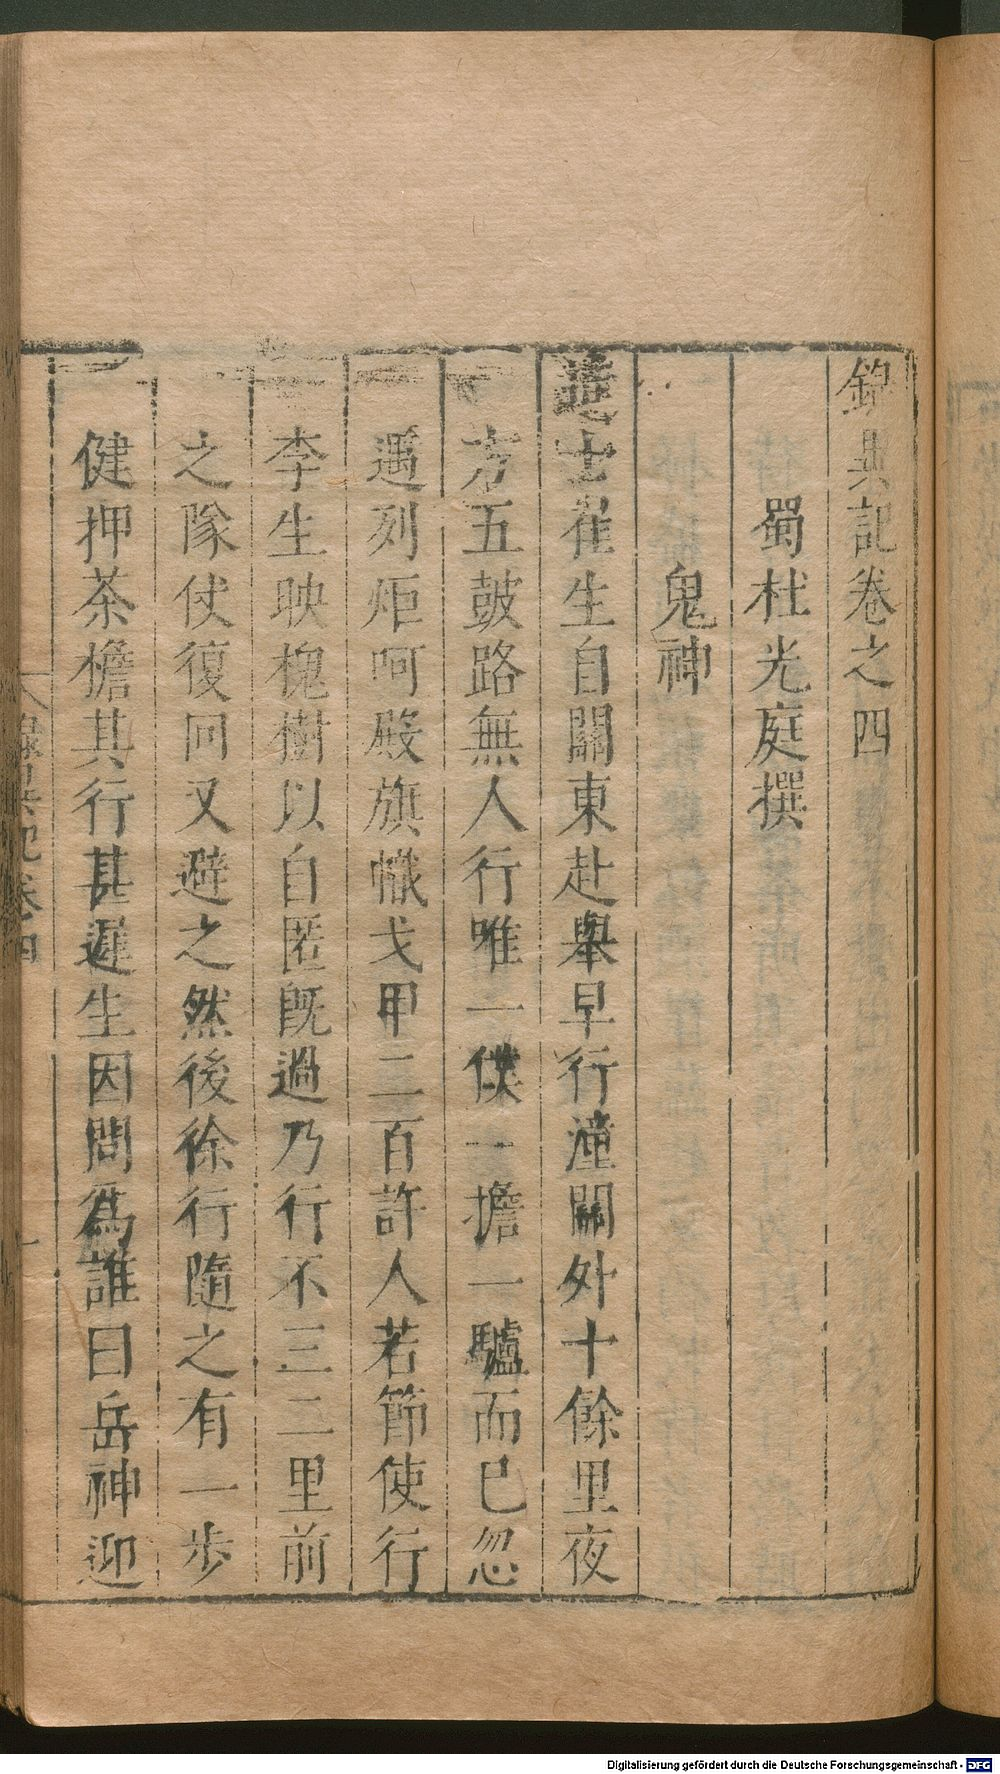 錄異記卷之四
蜀杜光庭撰
鬼神
進士崔生自關東赴舉早行潼關外十餘里夜
方五鼓路無人行唯一僕一擔一驢而已忽
遇列炬呵殿旗幟戈甲二百許人若節使行
李生映槐樹以自匿旣過乃行不三二里前
之隊仗復回又避之然後徐行隨之有一步
健押茶檐其行甚遲生因問爲誰曰岳神迎
錄異記卷四
一
Digitalisierung gefördert durch die Deutsche Forschungsgemeinschaft - DFG